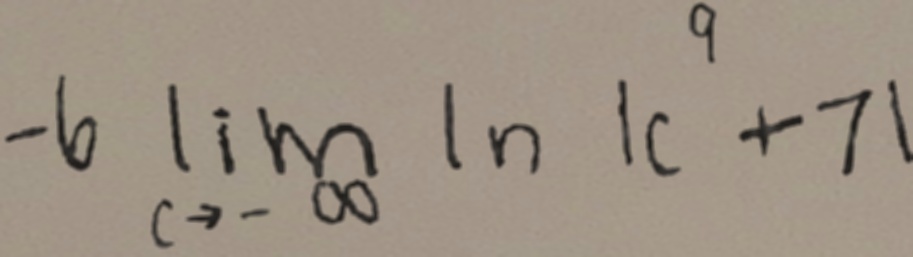 -6 lim ln |c⁹ + 7|
c → - ∞